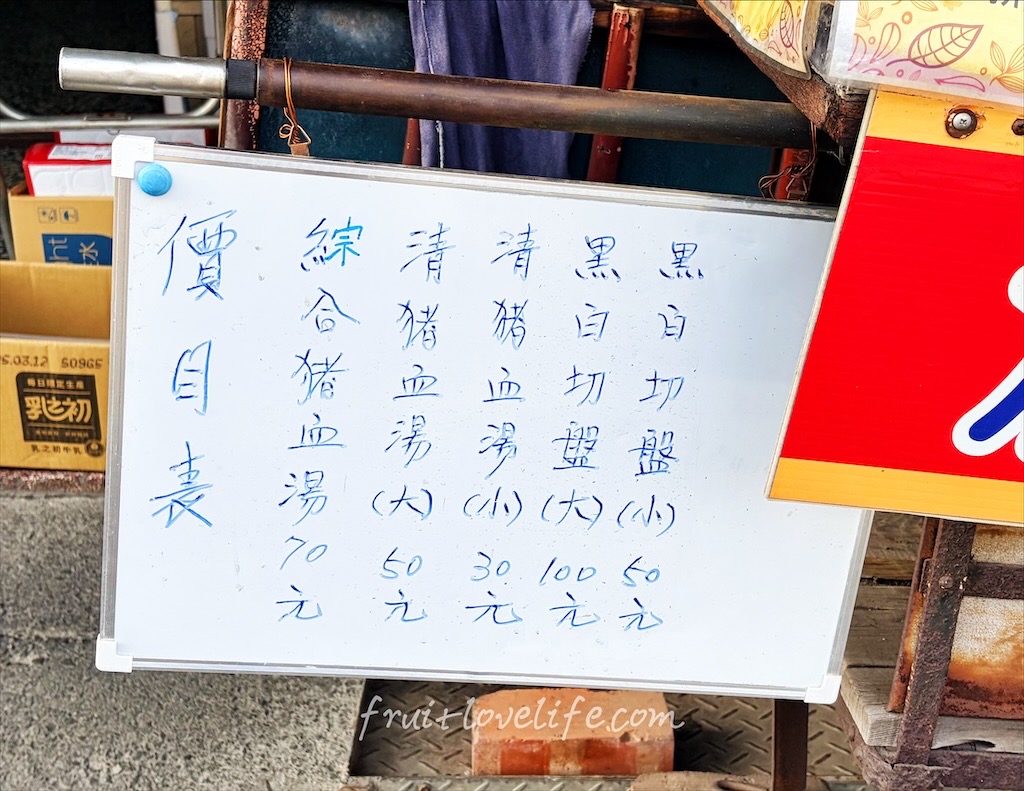 價目表
綜合猪血湯70元
清猪血湯(大)50元
清猪血湯(小)30元
黑白切盤(大)100元
黑白切盤(小)50元
水
5.03.12 50965
每日限定生産
乳之初
乳之初牛乳
fruitlovelife.com